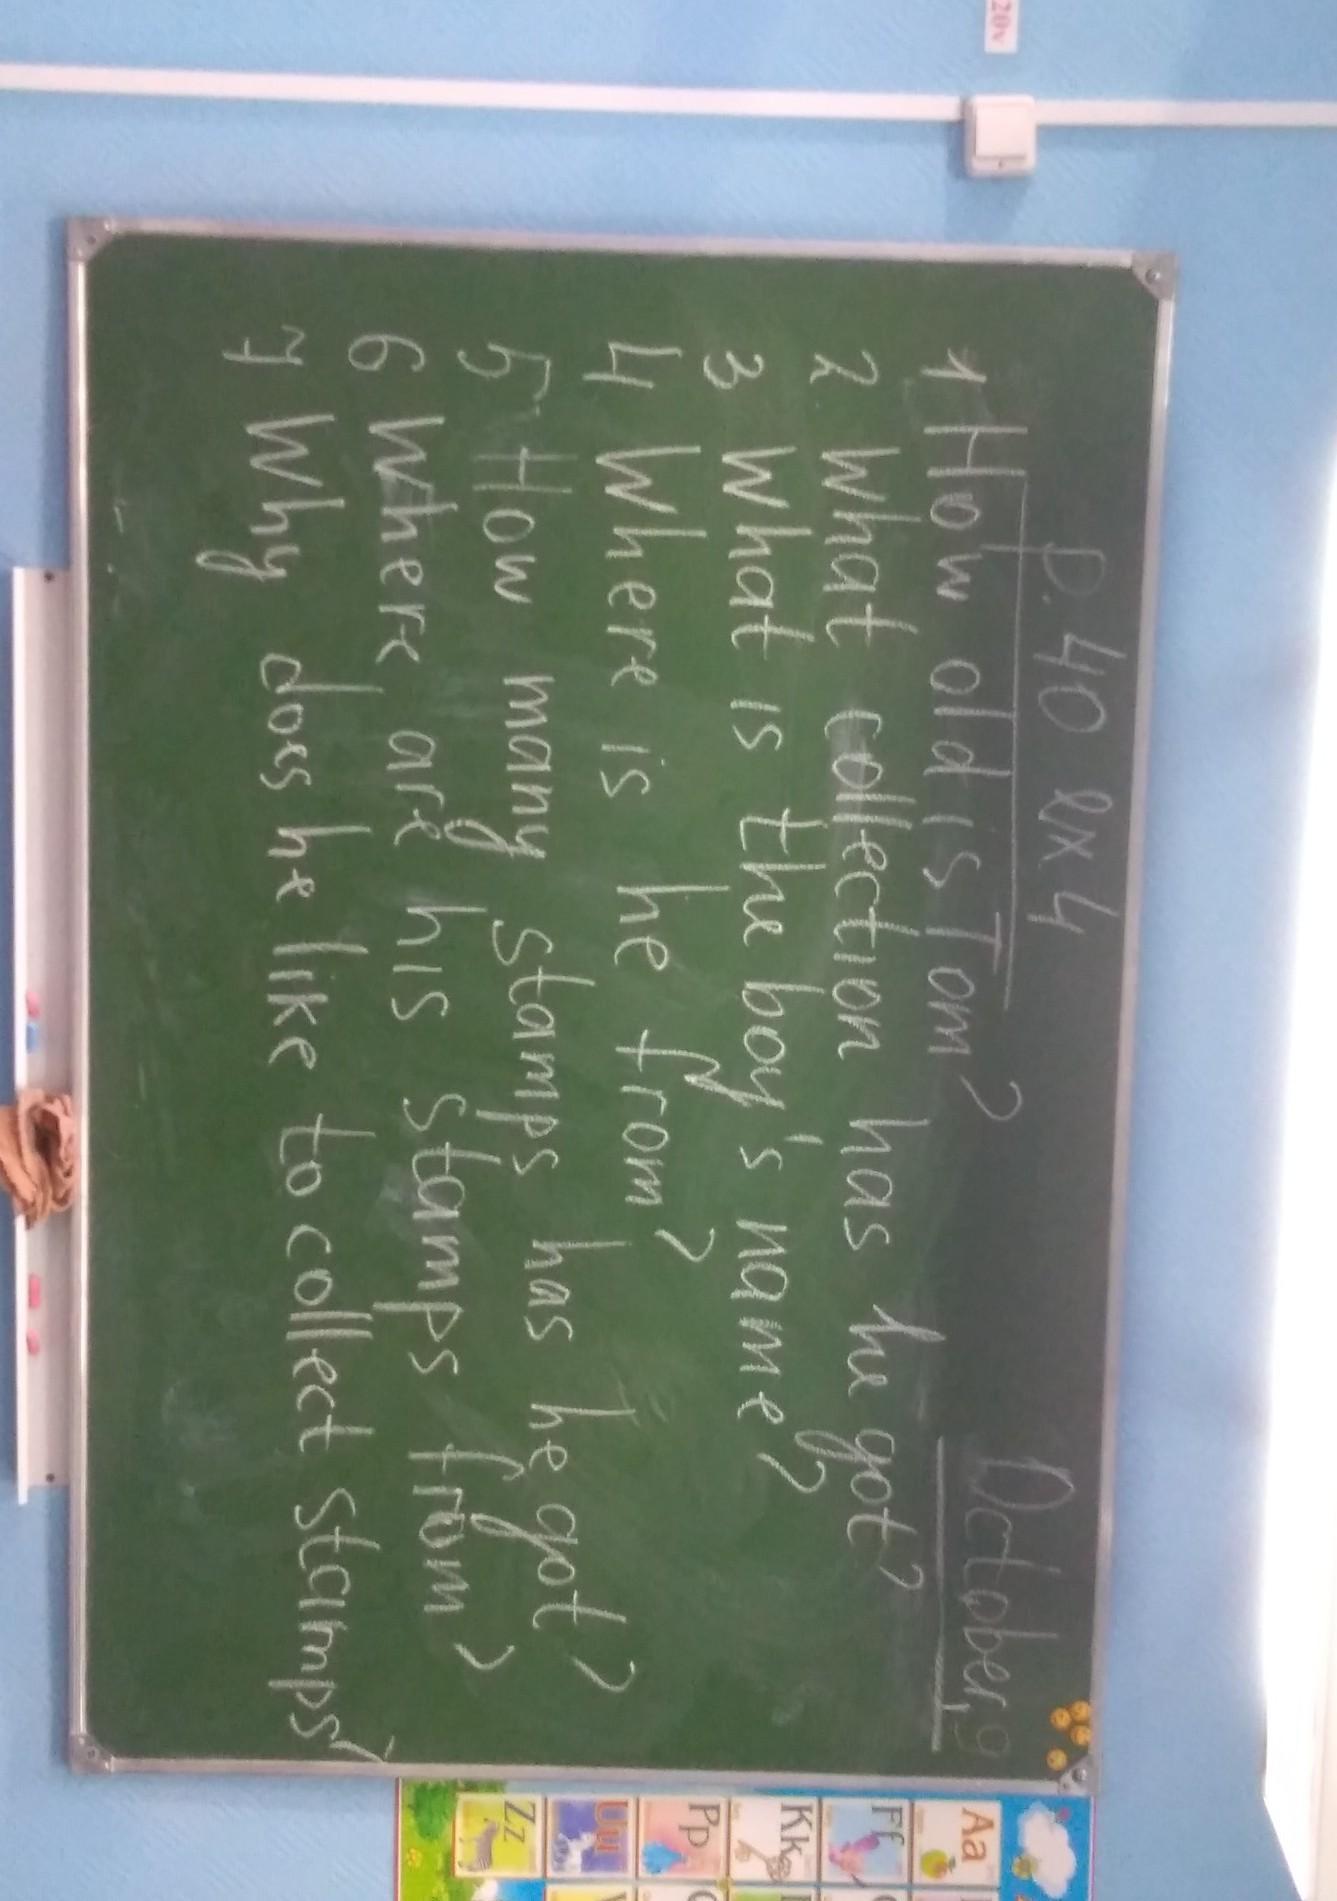 20v
p. 40 ex 4
October, 9
1 How old is Tom?
2 What collection has he got?
3 What is the boy's name?
4 Where is he from?
5 How many stamps has he got?
6 Where are his stamps from?
7 Why does he like to collect stamps?
Aa
Ff
Kk
Pp
Uu
Zz